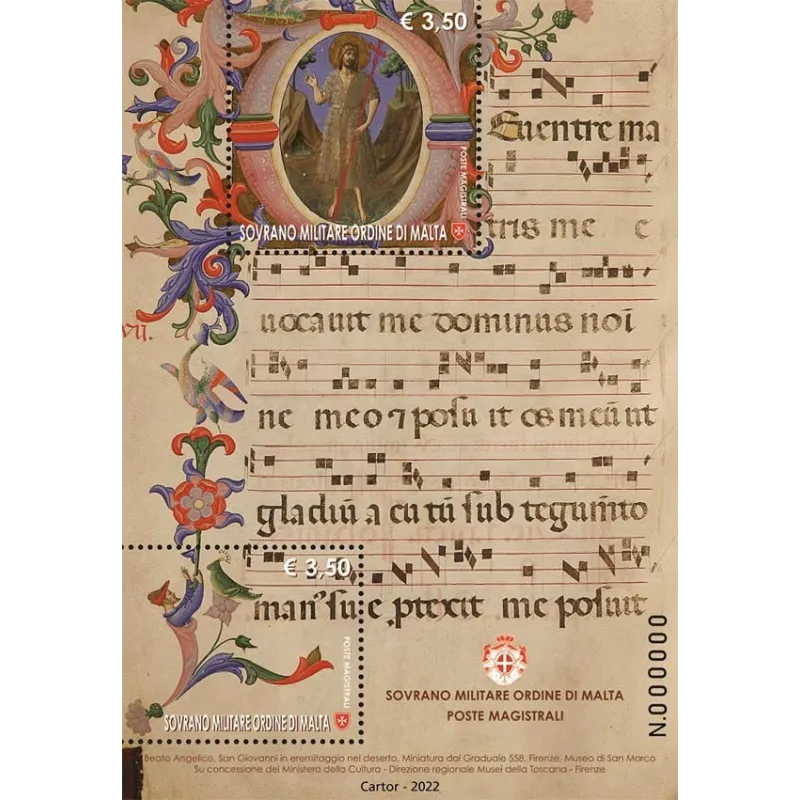 € 3,50
POSTE MAGISTRALI
SOVRANO MILITARE ORDINE DI MALTA
Euentre ma
tris me e
uocauit me dominus noī
vii.
ne meo ⁊ posu it os meū ut
gladiū a cu tū sub tegumīto
€ 3,50
man᾽ su e ꝓtexit me posuit
POSTE MAGISTRALI
SOVRANO MILITARE ORDINE DI MALTA
SOVRANO MILITARE ORDINE DI MALTA
POSTE MAGISTRALI
N.000000
Beato Angelico, San Giovanni in eremitaggio nel deserto, Miniatura dal Graduale 558, Firenze, Museo di San Marco
Su concessione del Ministero della Cultura - Direzione regionale Musei della Toscana - Firenze
Cartor - 2022